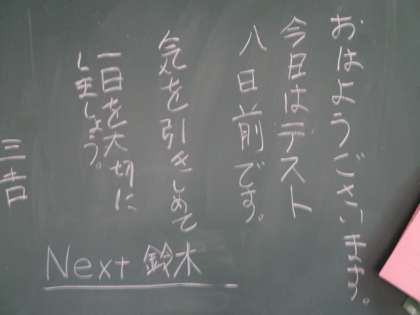 おはようございます。
今日はテスト
八日前です。
気を引きしめて
一日を大切に
しましょう。
三吉
Next 鈴木